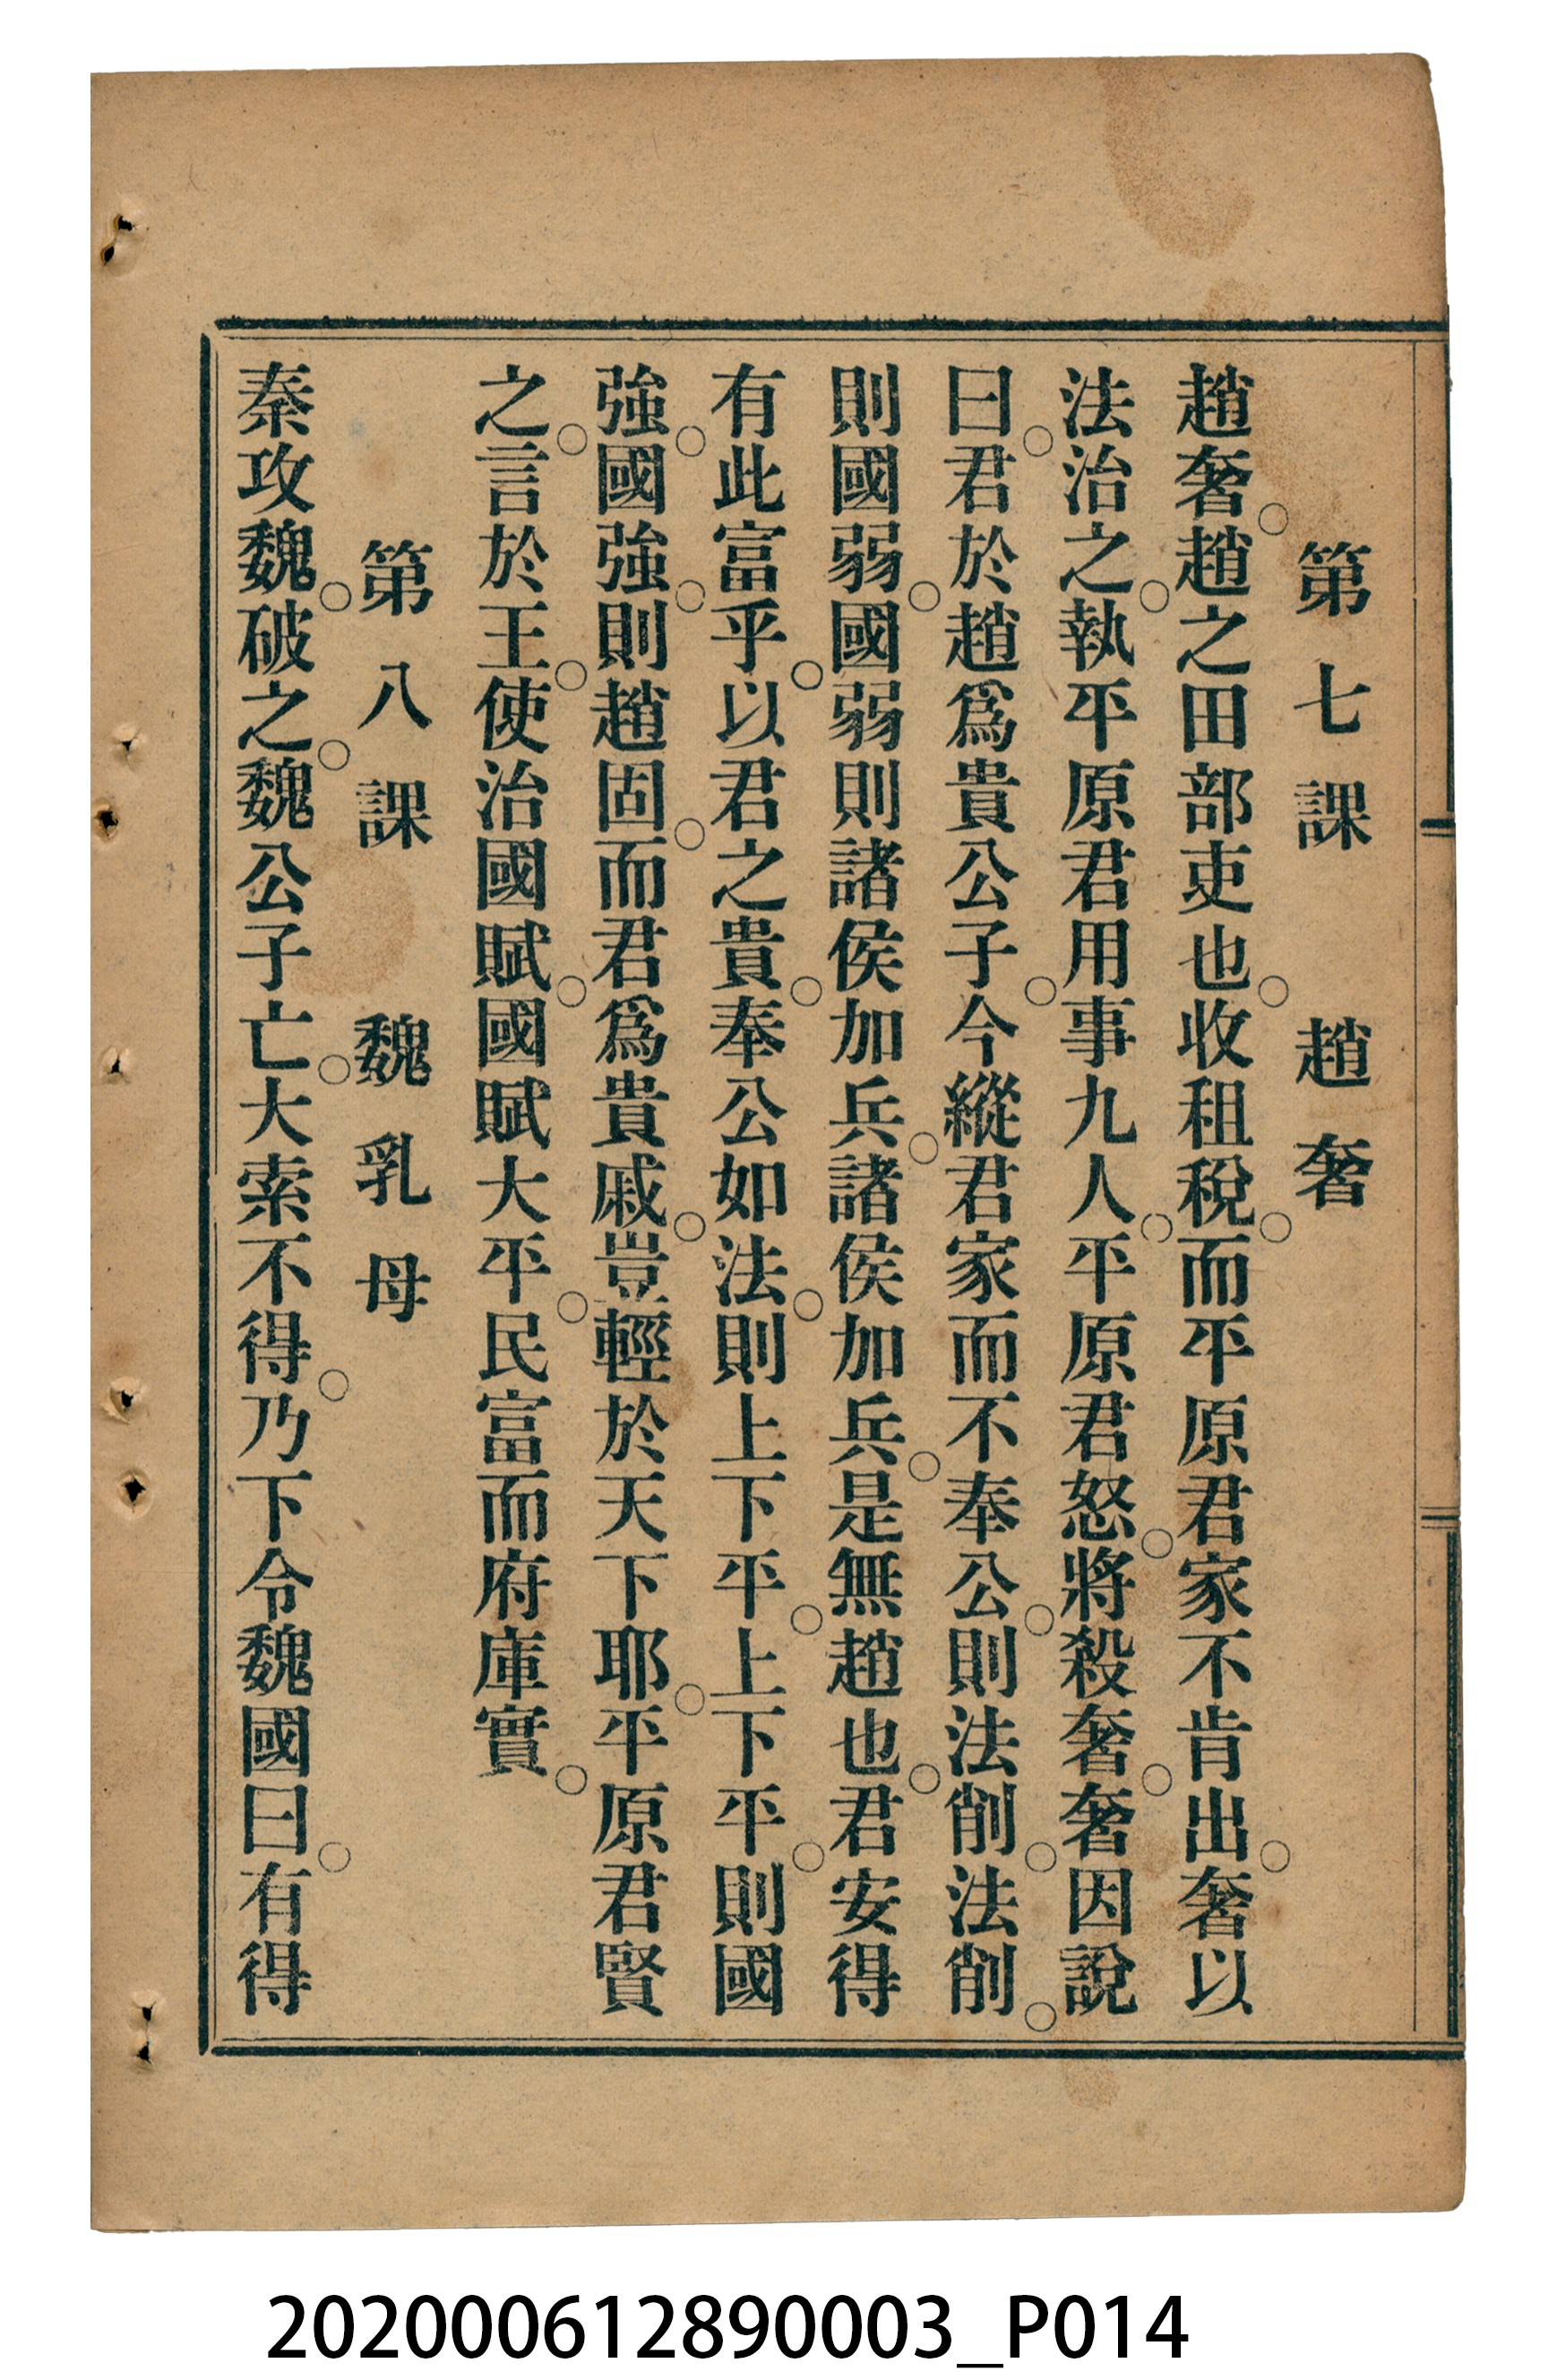 第七課　趙奢
趙奢。趙之田部吏也。收租稅。而平原君家不肯出。奢以
法治之。執平原君用事九人。平原君怒。將殺奢。奢因說
曰。君於趙爲貴公子。今縱君家而不奉公。則法削。法削。
則國弱。國弱則諸侯加兵。諸侯加兵。是無趙也。君安得
有此富乎。以君之貴。奉公如法。則上下平。上下平。則國
強。國強。則趙固。而君爲貴戚。豈輕於天下耶。平原君賢
之。言於王。使治國賦。國賦大平。民富而府庫實。
第八課　魏乳母
秦攻魏。破之。魏公子亡。大索不得。乃下令魏國曰。有得
202000612890003_P014